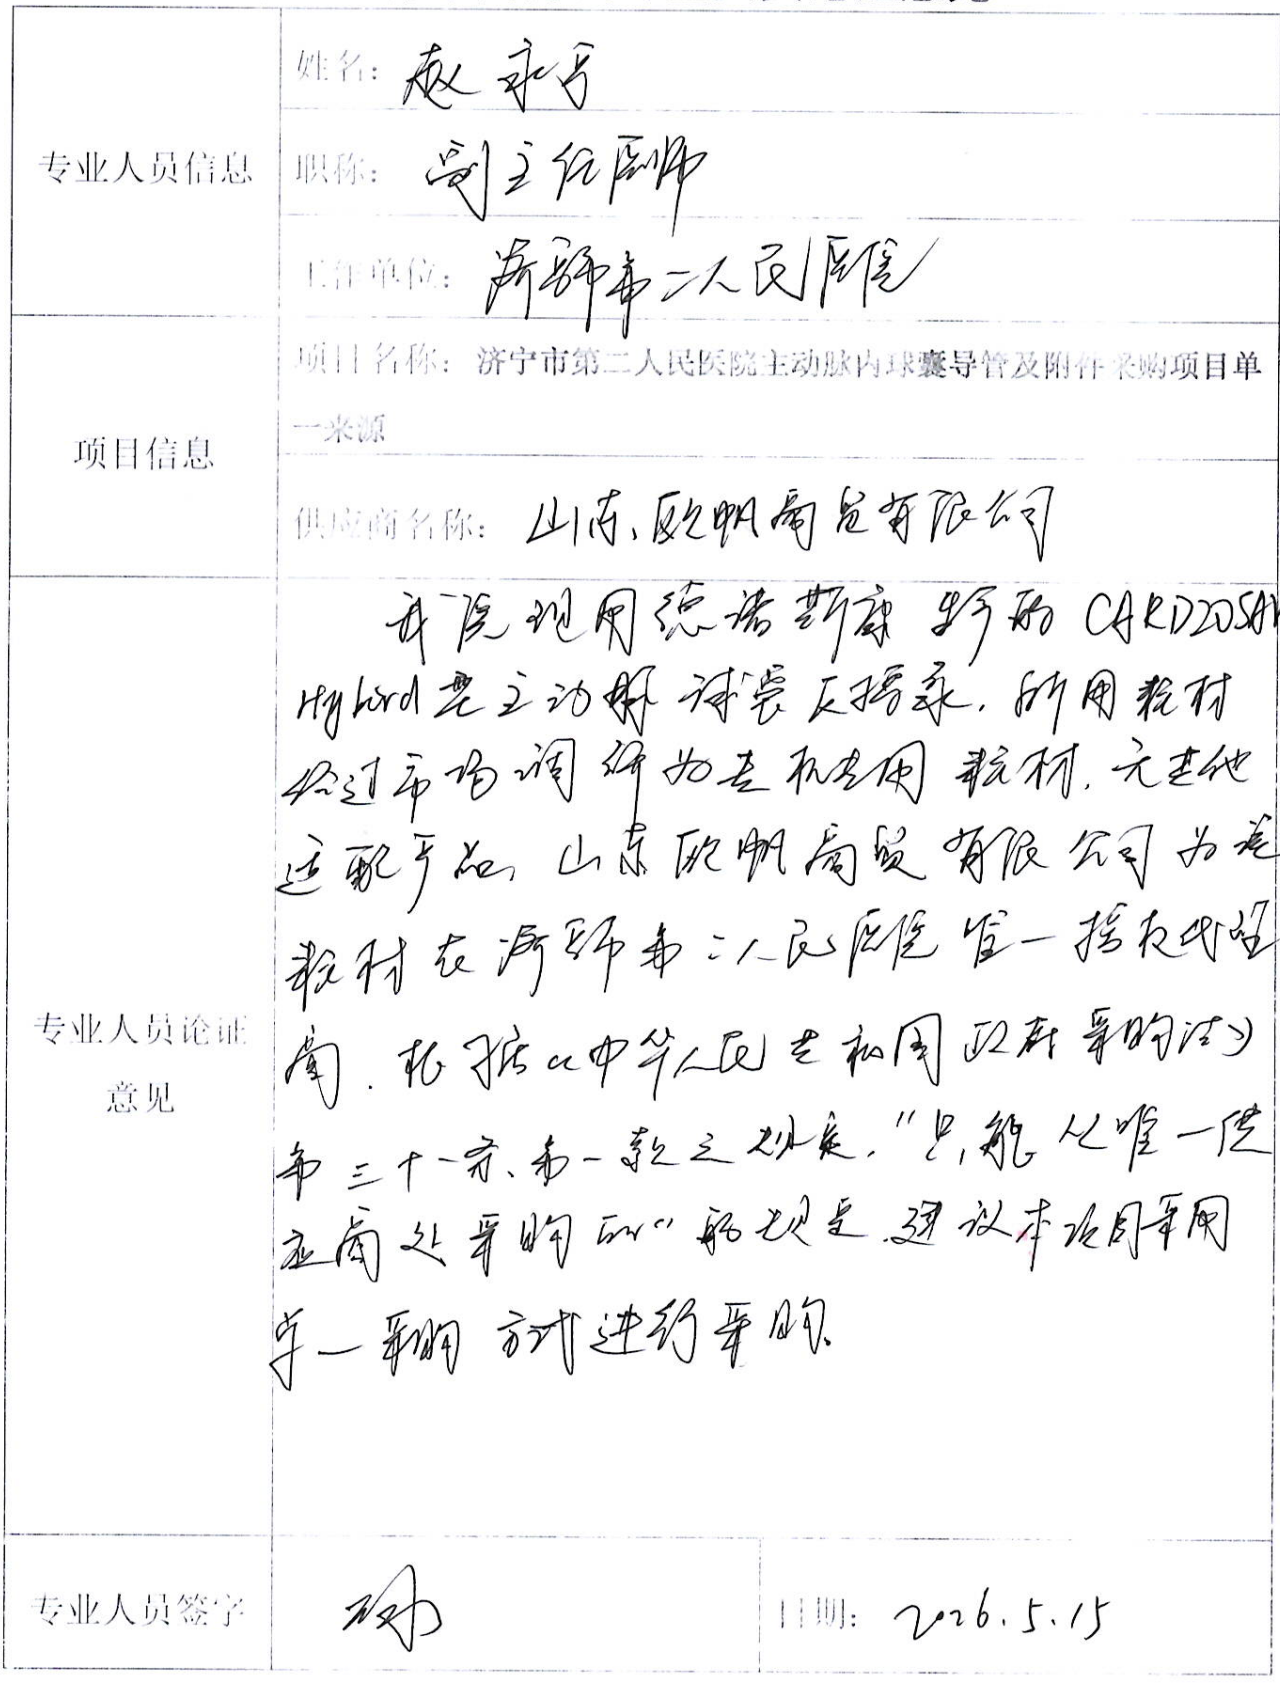 专业人员信息
姓名：赵永
职称：副主任医师
工作单位：济宁市第二人民医院
项目信息
项目名称：济宁市第二人民医院主动脉内球囊导管及附件采购项目单
一来源
供应商名称：山东欧帆商贸有限公司
专业人员论证
意见
我院现用德诺斯康 的
主动脉球囊反搏泵，所用耗材
经过市场调研为专机专用耗材，无其他
适配产品，山东欧帆商贸有限公司为该
耗材在济宁市第二人民医院唯一指定代理
商，根据《中华人民共和国政府采购法》
第三十一条、第一款之规定，“只能从唯一供
应商处采购的”的规定，建议本项目采用
单一采购方式进行采购。
专业人员签字
日期：2026.5.15